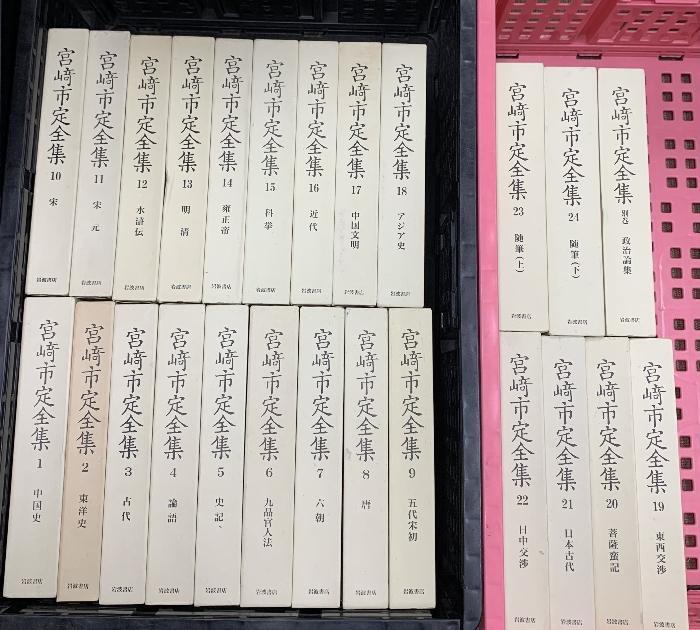 宮﨑市定全集 10 宋 岩波書店
宮﨑市定全集 11 宋 元 岩波書店
宮﨑市定全集 12 水滸伝 岩波書店
宮﨑市定全集 13 明 清 岩波書店
宮﨑市定全集 14 雍正帝 岩波書店
宮﨑市定全集 15 科挙 岩波書店
宮﨑市定全集 16 近代 岩波書店
宮﨑市定全集 17 中国文明 岩波書店
宮﨑市定全集 18 アジア史 岩波書店
宮﨑市定全集 1 中国史 岩波書店
宮﨑市定全集 2 東洋史 岩波書店
宮﨑市定全集 3 古代 岩波書店
宮﨑市定全集 4 論語 岩波書店
宮﨑市定全集 5 史記 岩波書店
宮﨑市定全集 6 九品官人法 岩波書店
宮﨑市定全集 7 六朝 岩波書店
宮﨑市定全集 8 唐 岩波書店
宮﨑市定全集 9 五代宋初 岩波書店
宮﨑市定全集 23 随筆(上) 岩波書店
宮﨑市定全集 24 随筆(下) 岩波書店
宮﨑市定全集 別巻 政治論集 岩波書店
宮﨑市定全集 22 日中交渉 岩波書店
宮﨑市定全集 21 日本古代 岩波書店
宮﨑市定全集 20 菩薩蛮記 岩波書店
宮﨑市定全集 19 東西交渉 岩波書店